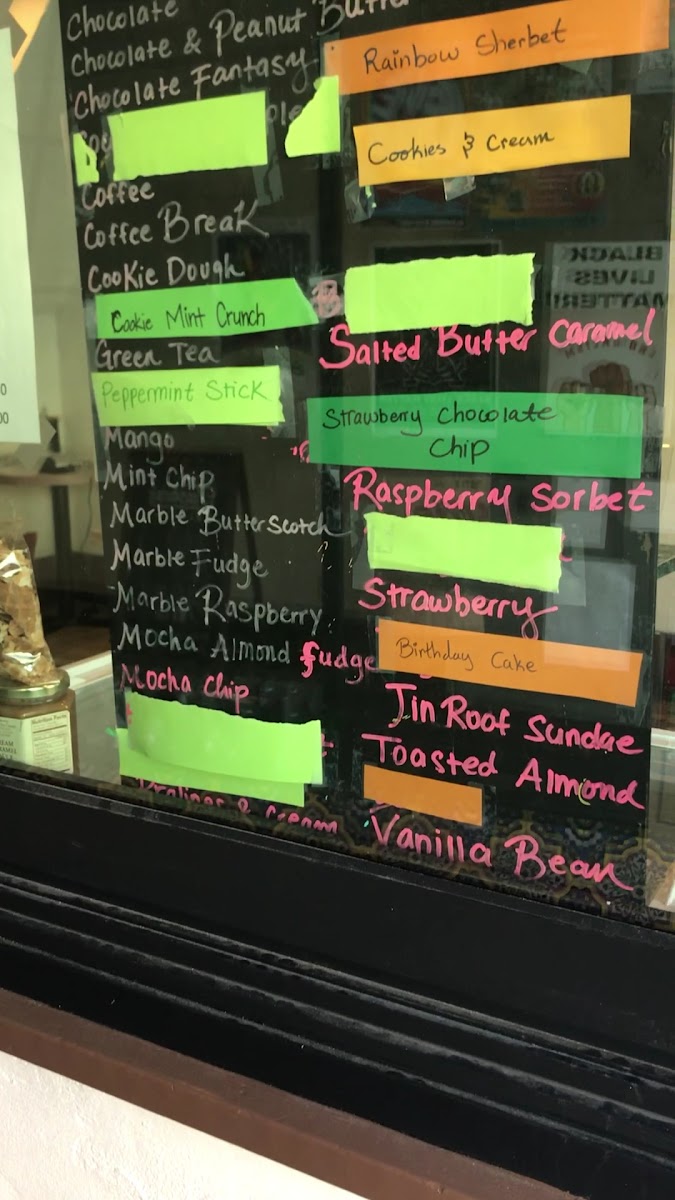 Chocolate
Chocolate & Peanut Butter
Chocolate Fantasy
Coffee
Coffee Break
Cookie Dough
Cookie Mint Crunch
Green Tea
Peppermint Stick
Mango
Mint Chip
Marble Butterscotch
Marble Fudge
Marble Raspberry
Mocha Almond Fudge
Mocha Chip
Pralines & Cream
Rainbow Sherbet
Cookies & Cream
BLACK
LIVES
MATTER!!
Salted Butter Caramel
Strawberry Chocolate
Chip
Raspberry Sorbet
Strawberry
Birthday Cake
Tin Roof Sundae
Toasted Almond
Vanilla Bean